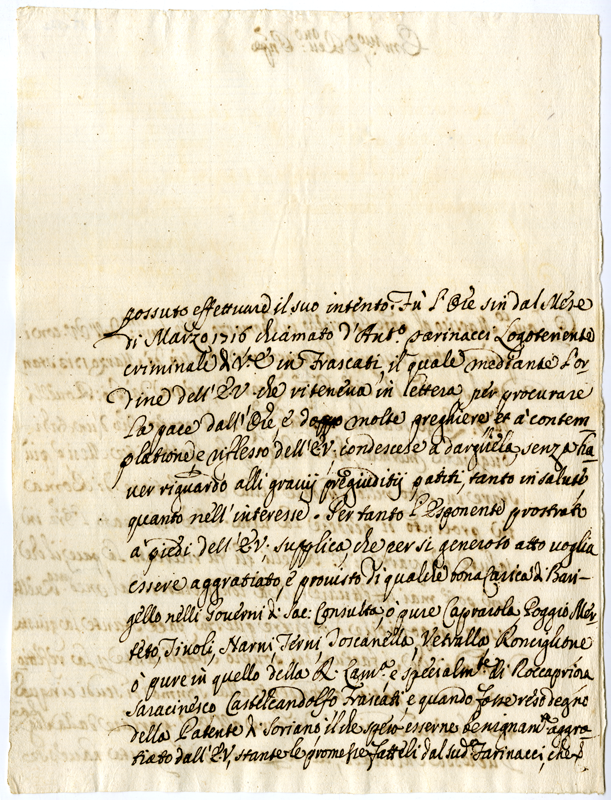 possuto effettuare il suo intento. Fù l'Ore sin dal Mese
di Marzo 1716 chiamato d'Ant.o Farinacci Logotenente
criminale di V.E. in Frascati, il quale mediante l'or
dine dell'EV. che riteneva in lettera, per procurare
la pace dall'Ore e doppo molte preghiere et à contem
platione e riflesso dell'EV. condescese a dargliela, senza ha
ver riguardo alli gravij pregiuditij patiti, tanto in salute
quanto nell'interesse. Per tanto l'Esponente prostrato
a' piedi dell'EV. supplica che per si generoso atto voglia
essere aggratiato, e provisto di qualche bona Carica di Bari-
gello nelli Governi di Sac: Consulta, ò pure Caprarola Poggio Mir
teto, Tivoli, Narni, Terni, Toscanella, Vetralla Ronciglione
ò pure in quello della R. Cam.a e specialm.te di Roccapriora
Saracinesco Castelcandolfo Frascati e quando fosse reso degno
della Patente di Soriano, il che spera esserne benignam.te aggra-
tiato dall'EV, stante le promesse fatteli dal sud.o Farinacci, che